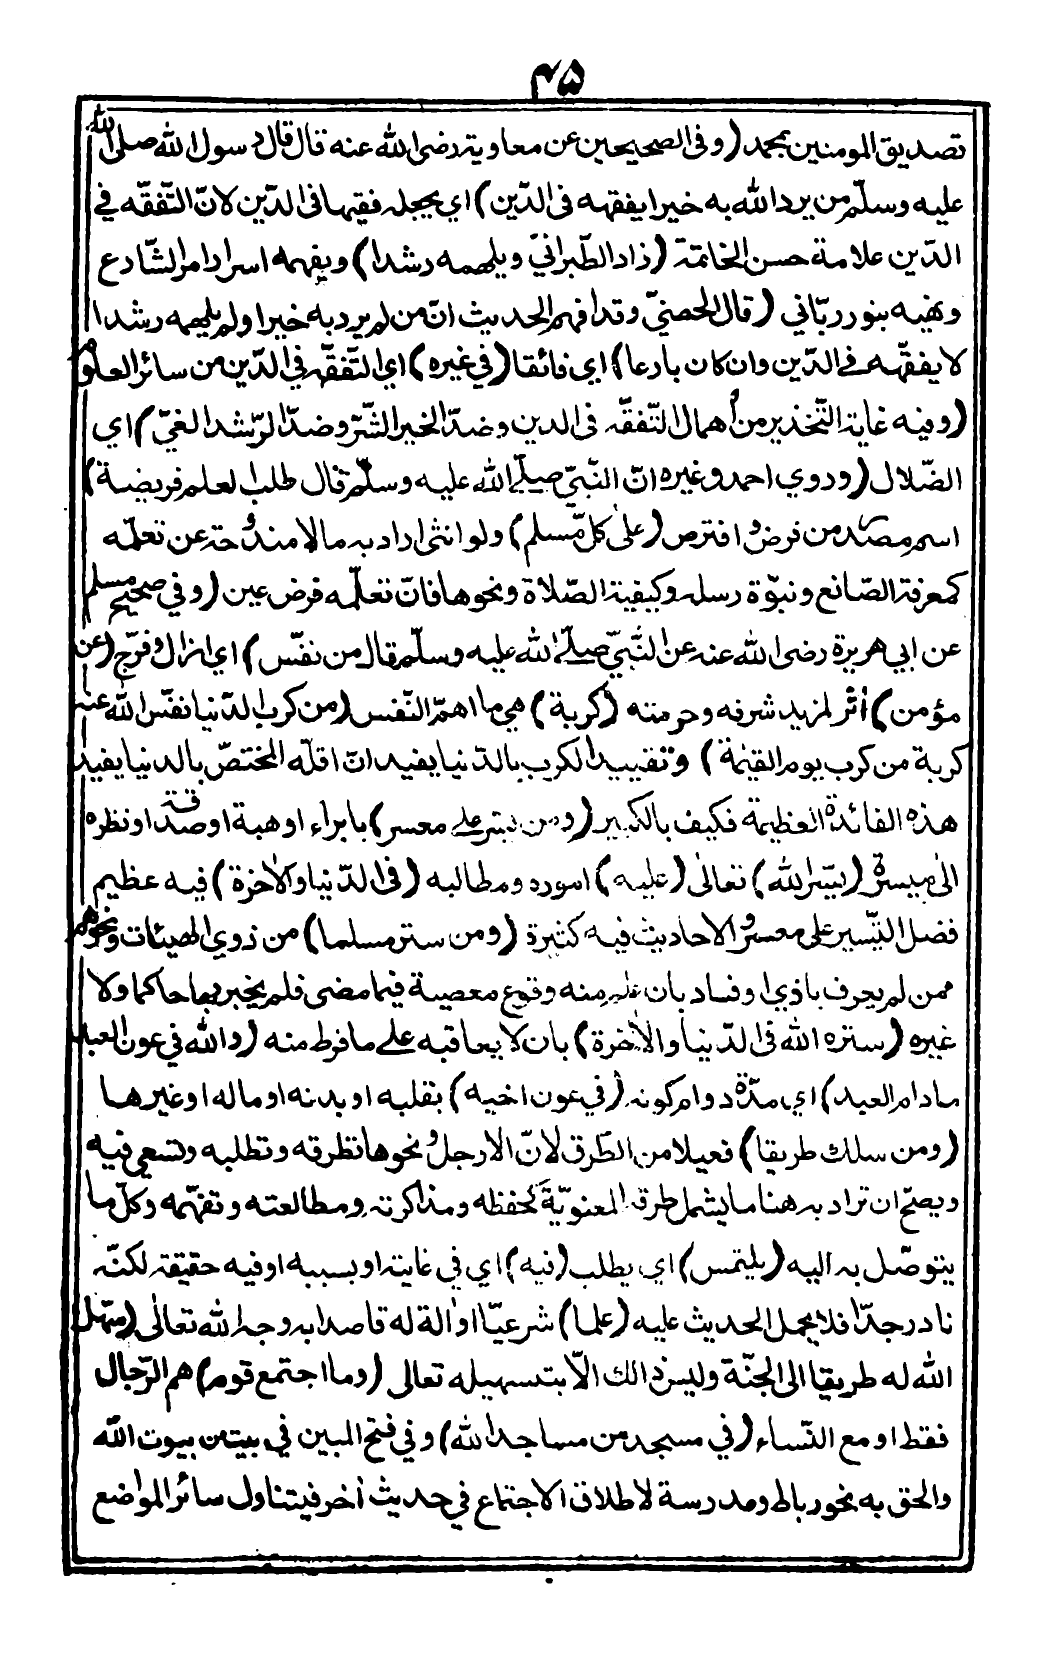 ۴۵
تصديق المومنين بمحمد (وفى الصحيحين عن معاوية رضى الله عنه قال قال رسول الله صلى الله
عليه وسلّم من يرد الله به خيرا يفقهه فى الدّين) اي يجعله فقيها فى الدّين لانّ التّفقّه في
الدّين علامة حسن الخاتمة (زاد الطّبرانيّ ويلهمه رشدا) ويفهمه اسرار امر الشّارع
ونهيه بنور ربّاني (قال الحصنيّ وقد افهم الحديث انّ من لم يرد به خيرا ولم يلهمه رشدا
لا يفقّهه في الدّين وان كان بارعا) اي فائقا (في غيره) اي التّفقّه في الدّين من سائر العلوم
(وفيه غاية التّحذير من اهمال التّفقّه فى الدين وضدّ الخير الشّرّ وضدّ الرّشد الغيّ) اي
الضّلال (وروي احمد وغيره انّ النّبيّ صلّى الله عليه وسلّم قال طلب العلم فريضة)
اسم مصدر من فرض وافترض (على كلّ مّسلم) ولو انثى اراد به مالا مندوحة عن تعلّمه
كمعرفة الصّانع ونبوّة رسله وكيفية الصّلاة ونحوها فانّ تعلّمه فرض عين (وفي صحيح مسلم
عن ابي هريرة رضى الله عنه عن النّبيّ صلّى الله عليه وسلّم قال من نفّس) اي ازال وفرّج (عن
مؤمن) اٰثر لمزيد شرفه وحرمته (كربة) هي ما اهمّ النّفس (من كرب الدّنيا نفّس الله عنه
كربة من كرب يوم القيٰمة) وتقييد الكرب بالدّنيا يفيد انّ اقلّه المختصّ بالدنيا يفيد
هذه الفائدة العظيمة فكيف بالكبير (ومن يسّر على معسر) بابراء او هبة او صدقة او نظره
الى ميسرة (يسّر الله) تعالىٰ (عليه) اموره ومطالبه (في الدّنيا والاٰخرة) فيه عظيم
فضل التّيسير على معسر والاحاديث فيه كثيرة (ومن ستر مسلما) من ذوي الهيئات ونحوهم
ممن لم يعرف باذي او فساد بان علم منه وقوع معصية فيما مضى فلم يخبر بها حاكما ولا
غيره (ستره الله فى الدّنيا والاٰخرة) بان لا يعاقبه على ما فرط منه (والله في عون العبد
مادام العبد) اي مدّة دوام كونه (في عون اخيه) بقلبه او بدنه او ماله او غيرها
(ومن سلك طريقا) فعيلا من الطّرق لانّ الارجل ونحوها تطرقه وتطلبه وتسعي فيه
ويصحّ ان تراد به هنا ما يشمل طرقه المعنويّة كحفظه ومذاكرته ومطالعته وتفهّمه وكلّ ما
يتوصّل به اليه (يلتمس) اي يطلب (فيه) اي في غايته او بسببه او فيه حقيقة لكنّه
نادر جدّا فلا يحمل الحديث عليه (علما) شرعيّا او اٰلة له قاصدا به وجه الله تعالىٰ (سهّل
الله له طريقا الى الجنّة وليس ذالك الّا بتسهيله تعالى (وما اجتمع قوم) هم الرّجال
فقط او مع النّساء (في مسجد من مساجد الله) وفي فتح المبين في بيت من بيوت الله
والحق به نحو رباط ومدرسة لاطلاق الاجتماع في حديث اٰخر فيتناول سائر المواضع